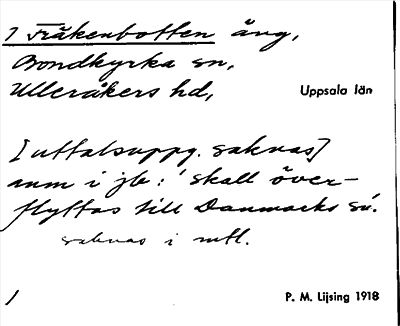 1 Fräkenbotten äng,
Bondkyrka sn,
Ulleråkers hd, Uppsala län
[uttalsuppg. saknas]
anm i jb: 'skall över-
flyttas till Danmarks sn'.
saknas i mtl.
/ P. M. Lijsing 1918